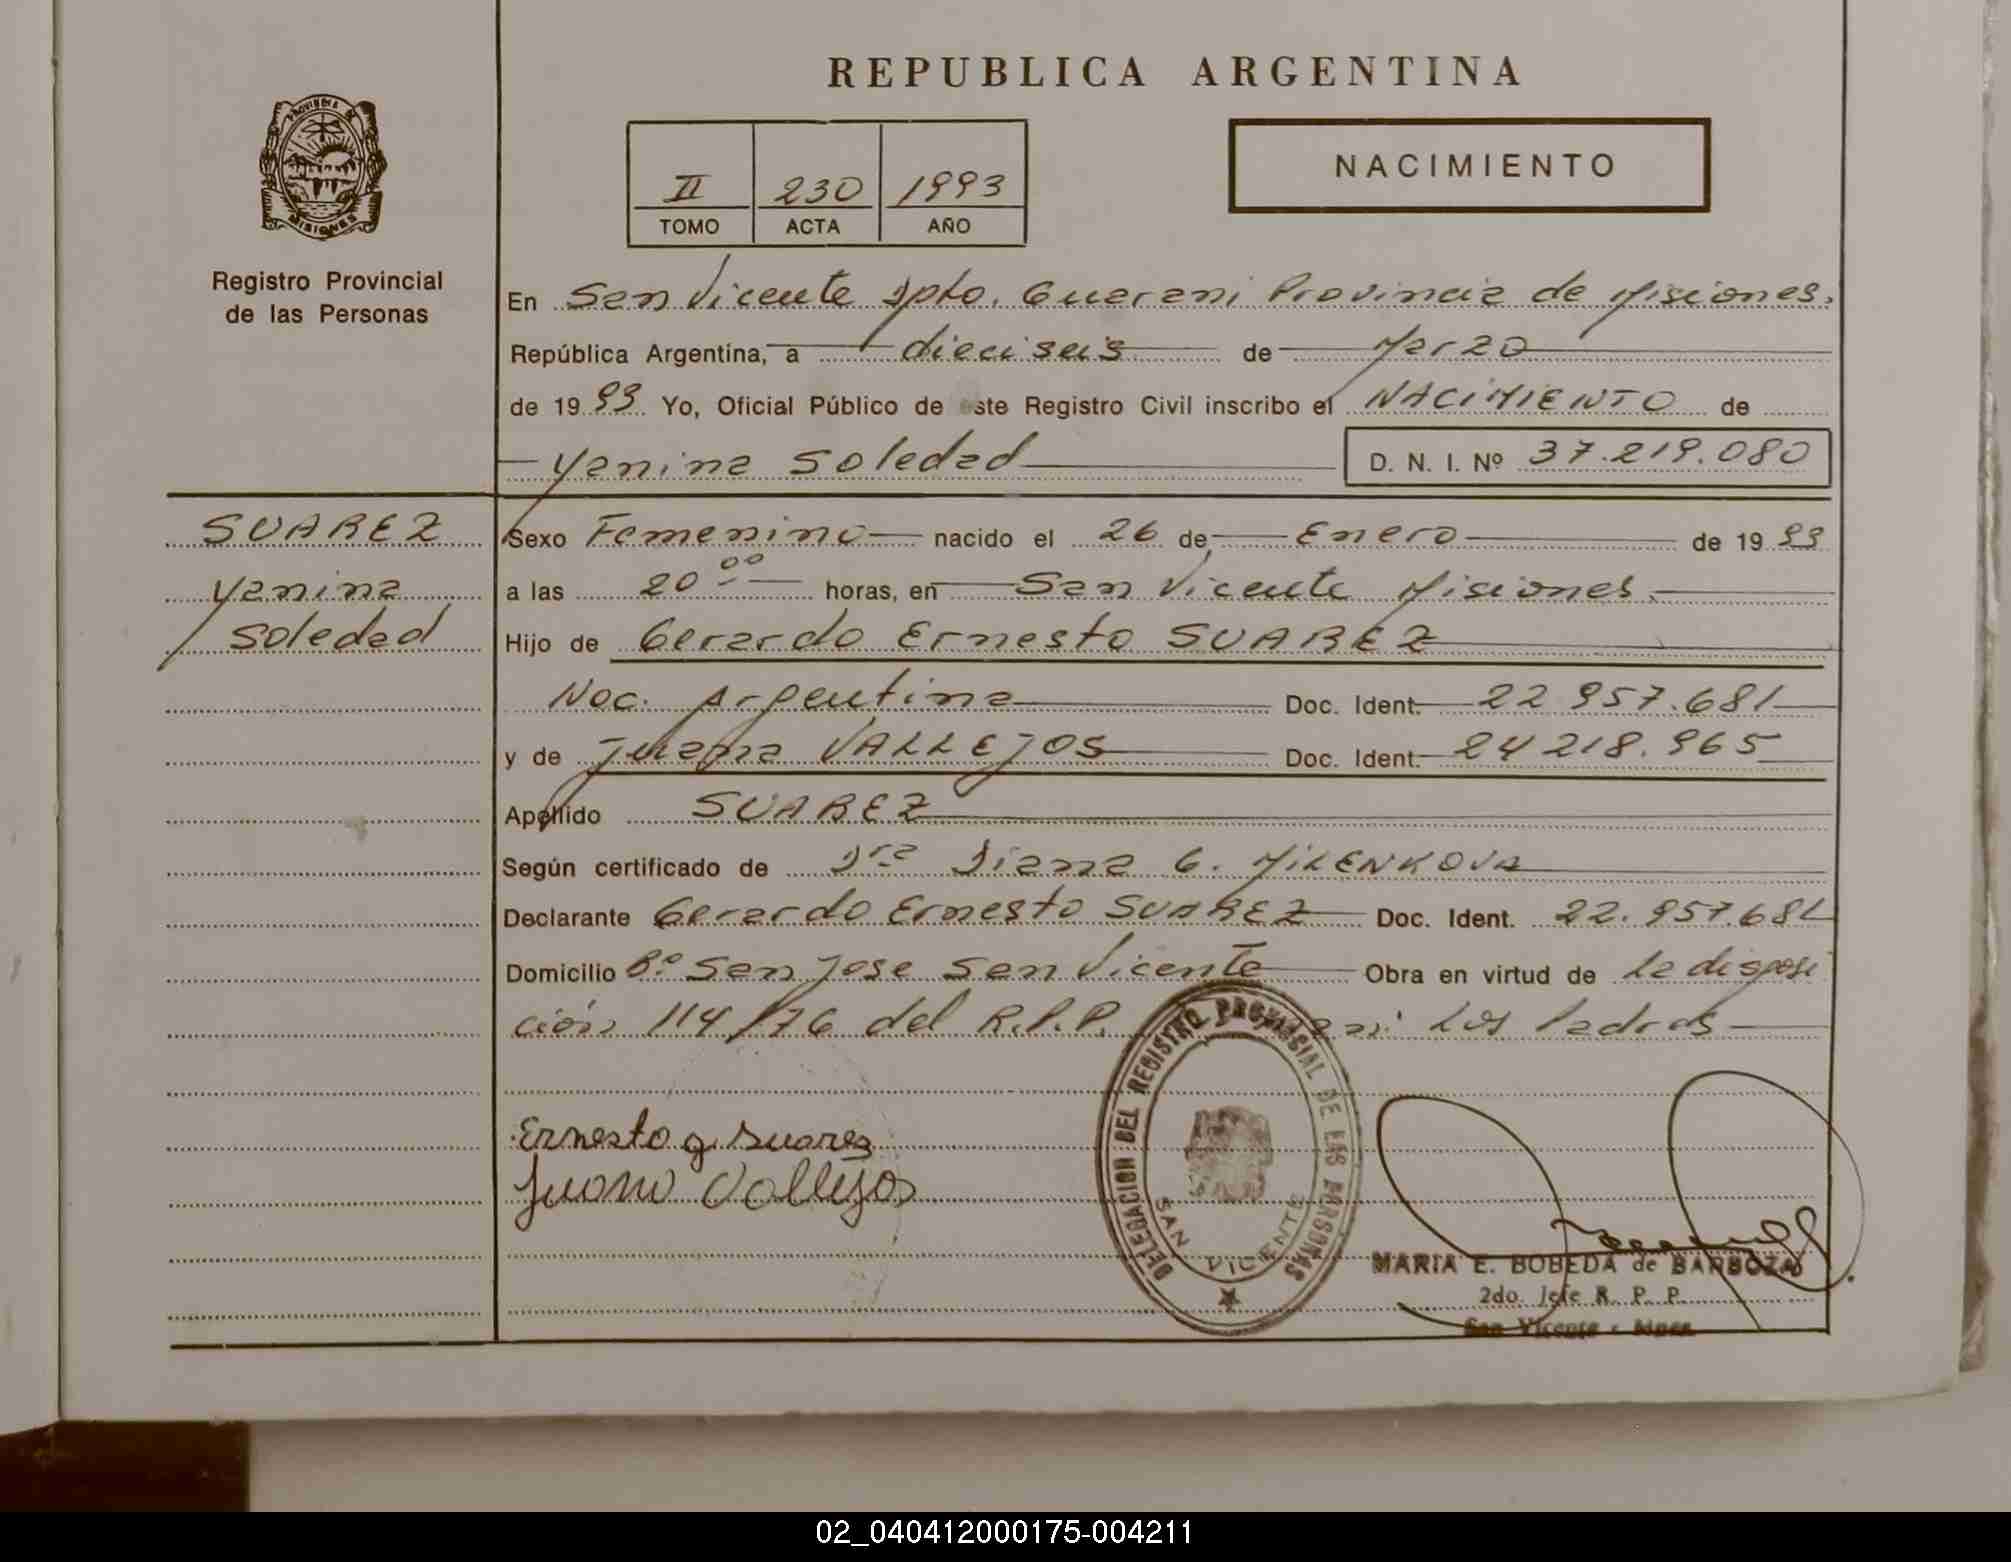 REPUBLICA ARGENTINA
PROVINCIA DE
MISIONES
II 230 1993
TOMO ACTA AÑO
NACIMIENTO
Registro Provincial
de las Personas
En San Vicente Dpto. Guarani Provincia de Misiones.
República Argentina, a dieciseis de Marzo
de 19 93 Yo, Oficial Público de este Registro Civil inscribo el NACIMIENTO de
Yanina Soledad D. N. I. Nº 37.219.080
SUAREZ
Yanina
Soledad
Sexo Femenino nacido el 26 de Enero de 19 93
a las 20 00 horas, en San Vicente Misiones.
Hijo de Gerardo Ernesto SUAREZ
Nac. Argentina Doc. Ident. 22 957.681
y de Juana VALLEJOS Doc. Ident. 24 218.965
Apellido SUAREZ
Según certificado de Dra Diana G. MILENKOVA
Declarante Gerardo Ernesto SUAREZ Doc. Ident. 22.957.681
Domicilio Bº San Jose San Vicente Obra en virtud de La disposi
ción 114/76 del R.P.P. Los Padres
Ernesto g. Suarez
Juana Vallejos
DELEGACION DEL REGISTRO PROVINCIAL DE LAS PERSONAS
SAN VICENTE
MARIA E. BOBEDA de BARBOZA
2do. Jefe R. P. P.
San Vicente - Mnes.
02_040412000175-004211